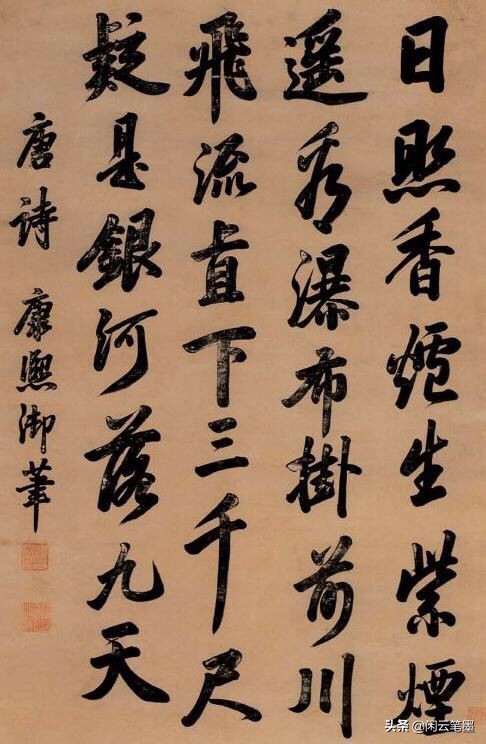 日照香爐生紫煙
遥看瀑布掛前川
飛流直下三千尺
疑是銀河落九天
唐詩 康熙御筆
头条 @闲云笔墨